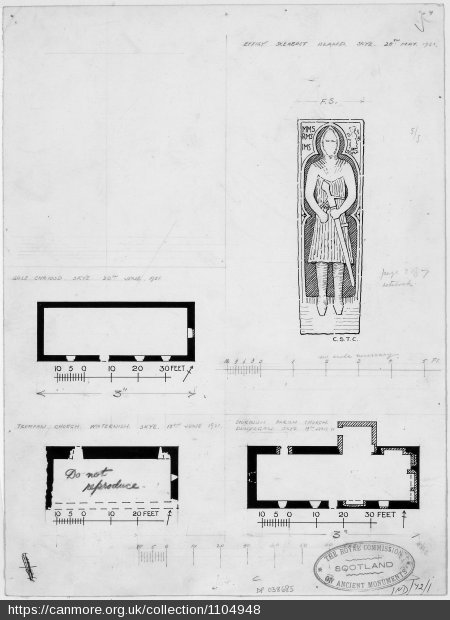 EFFIGY SKEABOST ISLAND. SKYE. 28TH MAY. 1921.
F.S.
MMS
RMS
IMS
5/5
C.S.T.C.
no scale necessary.
10 5 0 1 2 3 4 5 FT
CHRIOSD. SKYE 20TH JUNE 1921
10 5 0 10 20 30 FEET
3"
TRUMPAN CHURCH. WATERNISH. SKYE. 18TH JUNE 1921.
Do not
reproduce.
10 5 0 10 20 FEET
DUIRINISH PARISH CHURCH.
DUNVEGAN SKYE
10 5 0 10 20 30 FEET
3"
THE ROYAL COMMISSION
SCOTLAND
ON ANCIENT MONUMENTS
IND/72/1
C
DP 038685
https://canmore.org.uk/collection/1104948